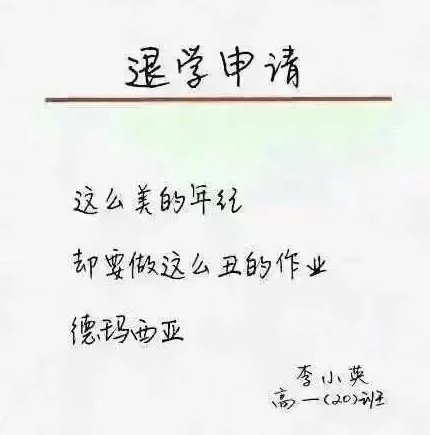 退学申请
这么美的年纪
却要做这么丑的作业
德玛西亚
李小英
高一(20)班